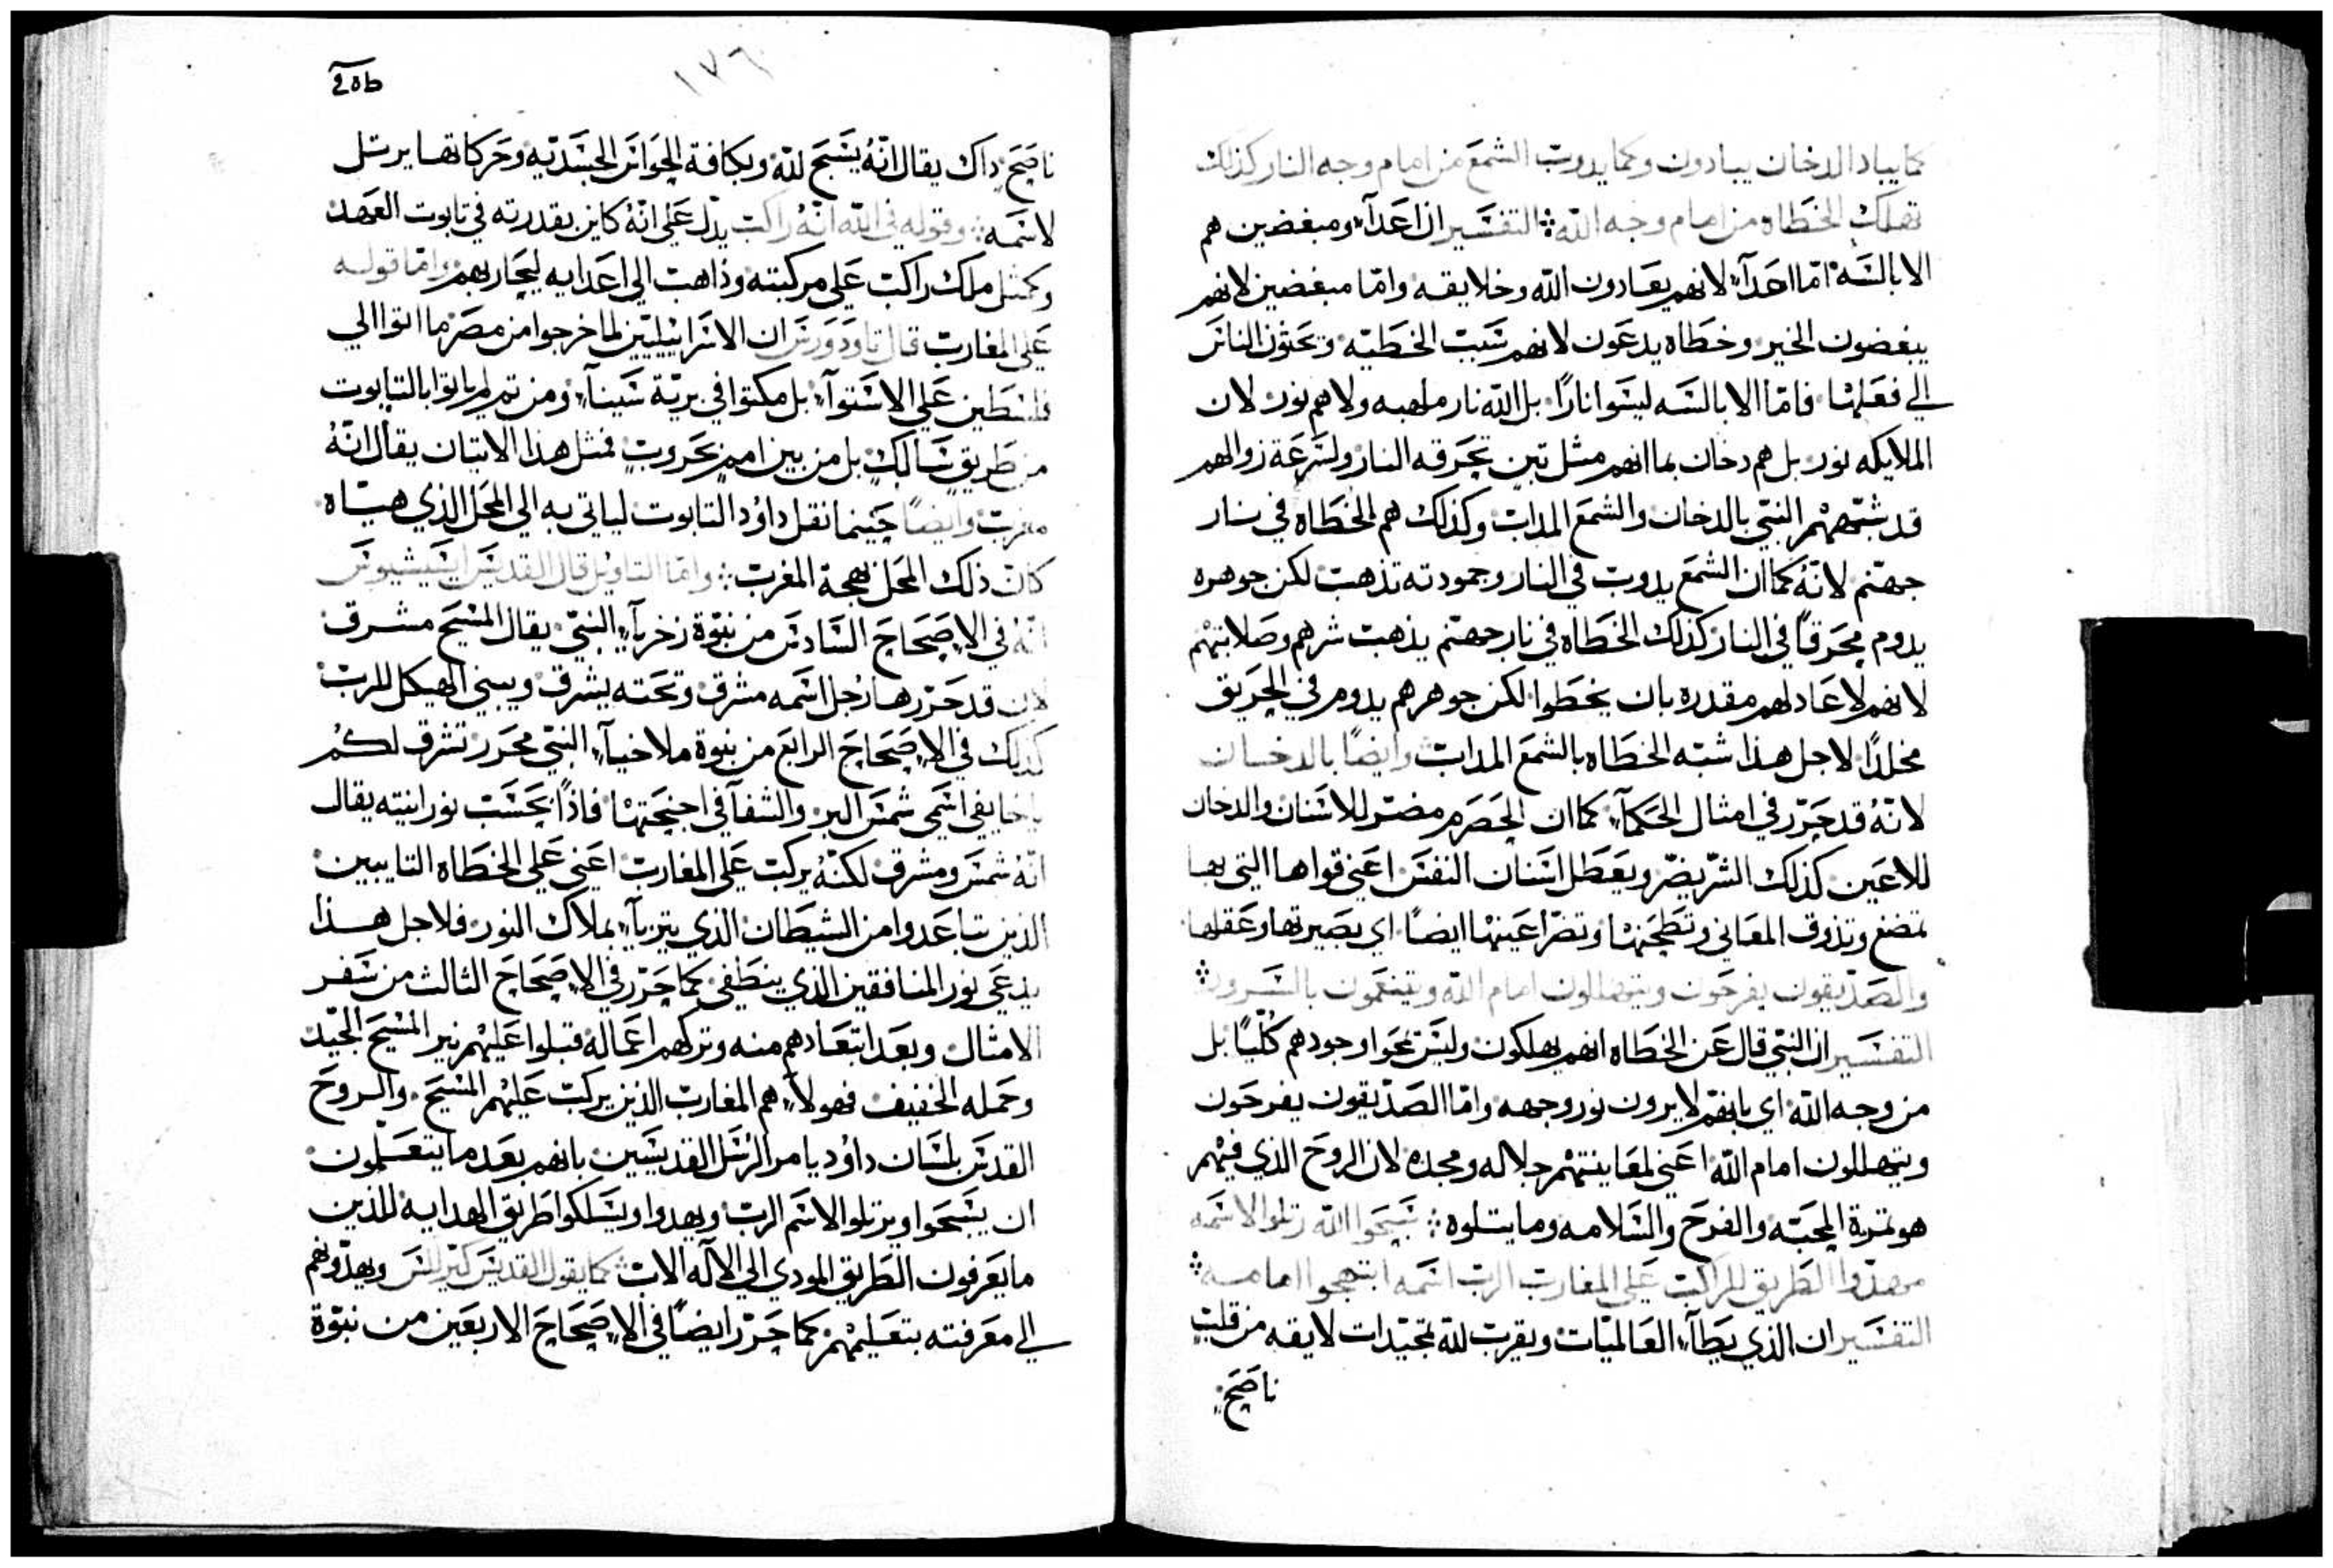 كما يباد الدخان يبادون وكما يدوب الشمع من امام وجه النار كذلك
تهلك الخطاه من امام وجه الله التفسير ان اعدآء ومبغضين هم
الابالسه امّا اعدآء لانهم يعادون الله وخلايقه وامّا مبغضين لانهم
يبغضون الخير وخطاه يدعون لانهم سبب الخطيّه ويحثون الناس
الي فعلها فامّا الابالسه ليسوا نارًا بل الله نار ملهبه ولا هم نور لان
الملايكه نور بل هم دخان بما انهم مثل تبن تحرقه النار ولسرعة زوالهم
قد شبّههم النبي بالدخان والشمع المداب وكذلك هم الخطاه في نار
جهنم لانّهُ كما ان الشمع يدوب في النار وجمودته تذهب لكن جوهره
يدوم محرقًا في النار كذلك الخطاه في نار جهنم يذهب شرهم وصلابتهم
لانهم لا عاد لهم مقدره بان يخطوا لكن جوهرهم يدوم في الحريق
مخلدًا لاجل هذا شبّه الخطاه بالشمع المداب وايضًا بالدخان
لانّهُ قد حرّر في امثال الحكمآء كما ان الحصرم مضرّ للاسنان والدخان
للاعين كذلك الشرّ يضرّ ويعطل اسنان النفس اعني قواها التي بها
تمضغ وتذوق المعاني وتطحنها وتضرّ اعينها ايضًا اي بصيرتها وعقلها
والصدّيقون يفرحون ويتهللون امام الله ويتنعمون بالسرور
التفسير ان النبي قال عن الخطاه انهم يهلكون وليس يمحوا وجودهم كليًا بل
من وجه الله اي بانهم لا يرون نور وجهه وامّا الصدّيقون يفرحون
ويتهللون امام الله اعني لمعاينتهم جلاله ومجده لان الروح الذي فيهم
هو ثمرة المحبّه والفرح والسلامه وما يتلوه سبّحوا الله رتلوا لاسمه
مهدّوا الطريق للراكب علي المغارب الرب اسمه ابتهجوا امامه
التفسير ان الذي يطآء العالميّات ويقرب لله تمجيدات لايقه من قلبٍ
ناصحٍ
٢٥b
١٧٦
ناصحٍ داك يقال انّهُ يسبح لله وبكافة الحواس الجسديّه وحركاتها يرتل
لاسمه وقوله في الله انّهُ راكب يدل علي انّهُ كاين بقدرته في تابوت العهد
وكمثل ملك راكب علي مركبته وذاهب الي اعدايه ليحاربهم وامّا قوله
علي المغارب قال تاودورس ان الاسراييليّين لما خرجوا من مصر ما اتوا الي
فلسطين علي الاستوآء بل مكثوا في بريّة سينآء ومن تم لم ياتوا بالتابوت
من طريق سالكٍ بل من بين اممٍ بحروبٍ فمثل هذا الاتيان يقال انّهُ
مغرب وايضًا حينما نقل داوُد التابوت لياتي به الي المحل الذي هيّاه
كان ذلك المحل بجهة المغرب وامّا التاويل قال القديس ايسيشيوس
انّهُ في الاصحاح السادس من نبوّة زخريآء النبي يقال المسيح مشرق
لان قد حرّر ها رُجل اسمه مشرق وتحته يشرق ويبني الهيكل للرب
كذلك في الاصحاح الرابع من نبوة ملاخيآء النبي محرر تشرق لكُم
يا خايفي اسمي شمس البر والشفآ في اجنحتها فاذًا بحسب نورانيته يقال
انّهُ شمس ومشرق لكنّهُ يركب علي المغارب اعني علي الخطاه التايبين
الذين تباعدوا من الشيطان الذي يتزيآء بملاك النور فلاجل هذا
يدعي نور المنافقين الذي ينطفي كما حرّر في الاصحاح الثالث من سفر
الامثال وبعد ابتعادهم منه وتركهم اعماله قبلوا عليهم نير المسيح الجيّد
وحمله الخفيف فهولآء هم المغارب الذين يركب عليهم المسيح والروح
القدس بلسان داوُد يامر الرسل القديسين بانهم بعد ما يتعلّمون
ان يسبحوا ويرتلوا لاسم الرب ويهدوا ويسلكوا طريق الهدايه للذين
ما يعرفون الطريق المودي الي الآله الاب كما يقول القديس كيرللس ويهدّونهم
الي معرفته بتعليمهم كما حرّر ايضًا في الاصحاح الاربعين من نبوّة